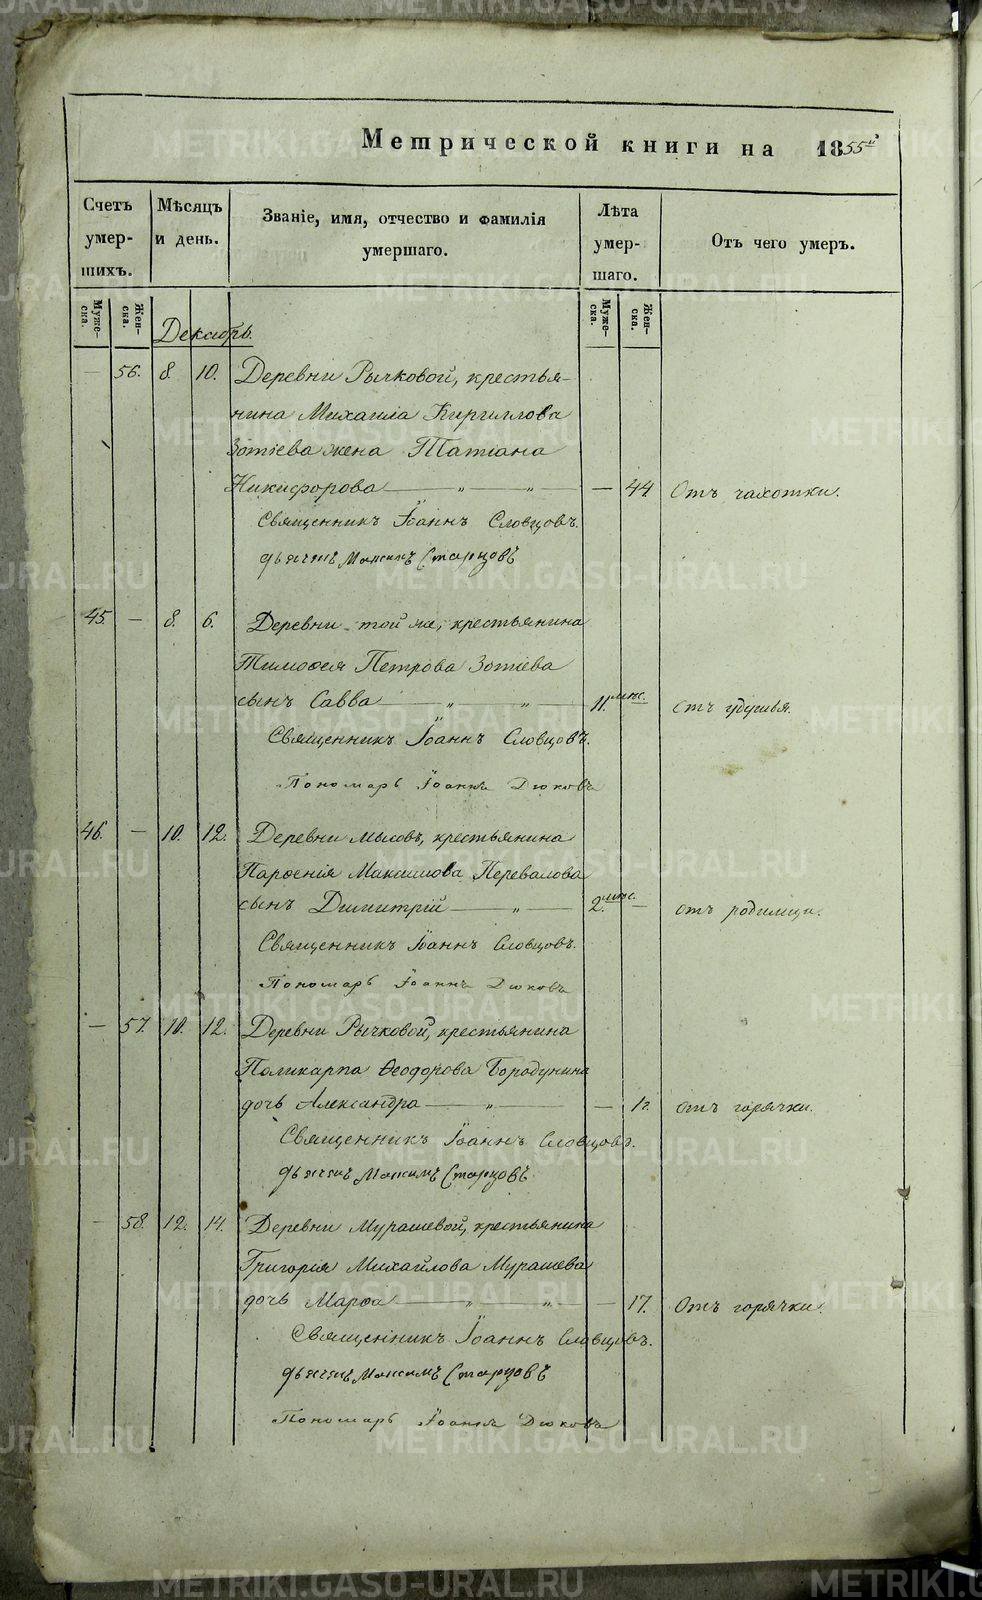 Метрической книги на 1855й
Счетъ умершихъ.
Мѣсяцъ и день.
Званіе, имя, отчество и фамилія умершаго.
Лѣта умершаго.
Отъ чего умеръ.
Мужеска.
Женска.
Мужеска.
Женска.
Декабрь.
— 56. 8. 10. Деревни Рычковой, крестья-
нина Михаила Кириллова
Зотіева жена Татіана
Никифорова — „ — „ — — 44 Отъ чахотки.
Священникъ Іоаннъ Словцовъ.
Дьячекъ Максимъ Старцовъ
45. — 8. 6. Деревни той же, крестьянина
Тимоѳея Петрова Зотіева
сынъ Савва — „ — „ — 11. мѣс. Отъ удушья.
Священникъ Іоаннъ Словцовъ.
Пономарь Іоаннъ Дюковъ
46. — 10. 12. Деревни Мысовъ, крестьянина
Парѳенія Максимова Перевалова
сынъ Димитрій — „ — 2. мѣс. — отъ родимца.
Священникъ Іоаннъ Словцовъ.
Пономарь Іоаннъ Дюковъ
— 57. 10. 12. Деревни Рычковой, крестьянина
Поликарпа Ѳеодорова Бородунина
дочь Александра — „ — — 1г. отъ горячки.
Священникъ Іоаннъ Словцовъ.
Дьячекъ Максимъ Старцовъ
— 58. 12. 14. Деревни Мурашевой, крестьянина
Григорія Михайлова Мурашева
дочь Марѳа — „ — „ — — 17. Отъ горячки.
Священникъ Іоаннъ Словцовъ.
Дьячекъ Максимъ Старцовъ
Пономарь Іоаннъ Дюковъ
METRIKI.GASO-URAL.RU